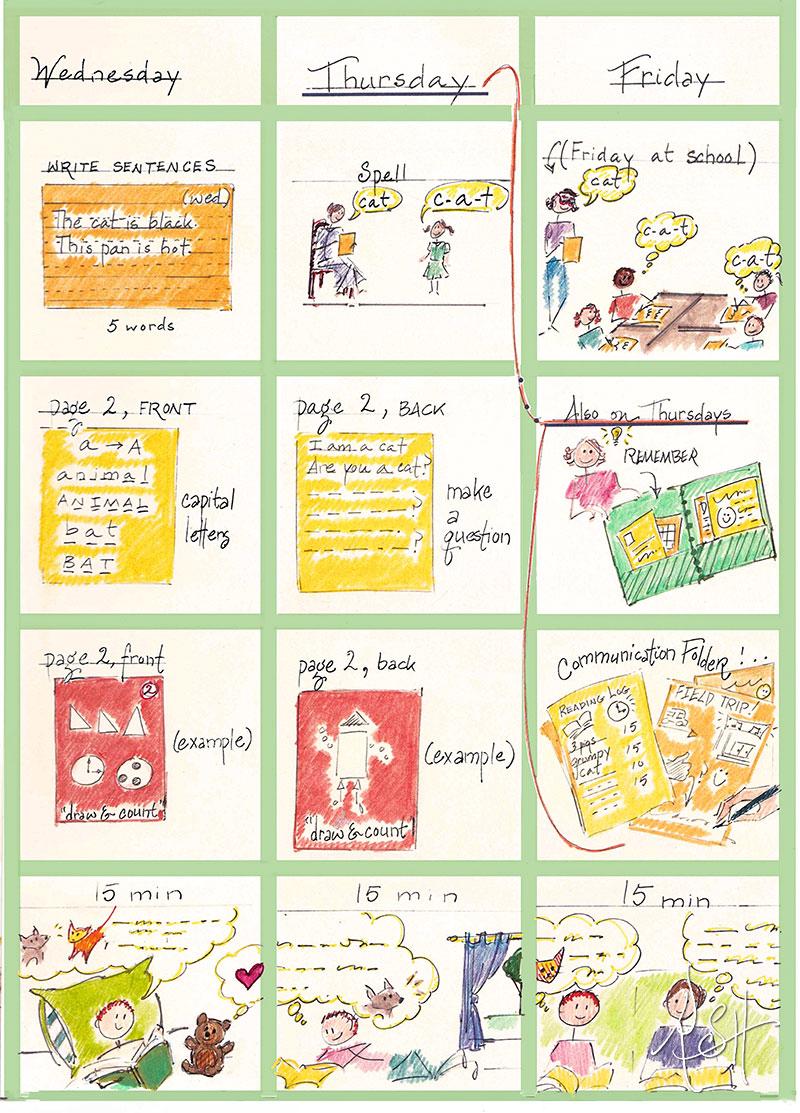 Wednesday
Thursday
Friday
WRITE SENTENCES
(wed)
The cat is black.
This pan is hot.
5 words
Spell
cat
c-a-t
(Friday at school)
cat
c-a-t
c-a-t
page 2, FRONT
a → A
animal
ANIMAL
bat
BAT
capital
letters
page 2, BACK
I am a cat
Are you a cat?
?
?
make
a
question
Also on Thursdays
REMEMBER
page 2, front
2
(example)
"draw & count"
page 2, back
(example)
"draw & count"
Communication Folder!..
READING LOG
3 pgs
grumpy
cat
15
15
10
15
FIELD TRIP!
15 min
15 min
15 min